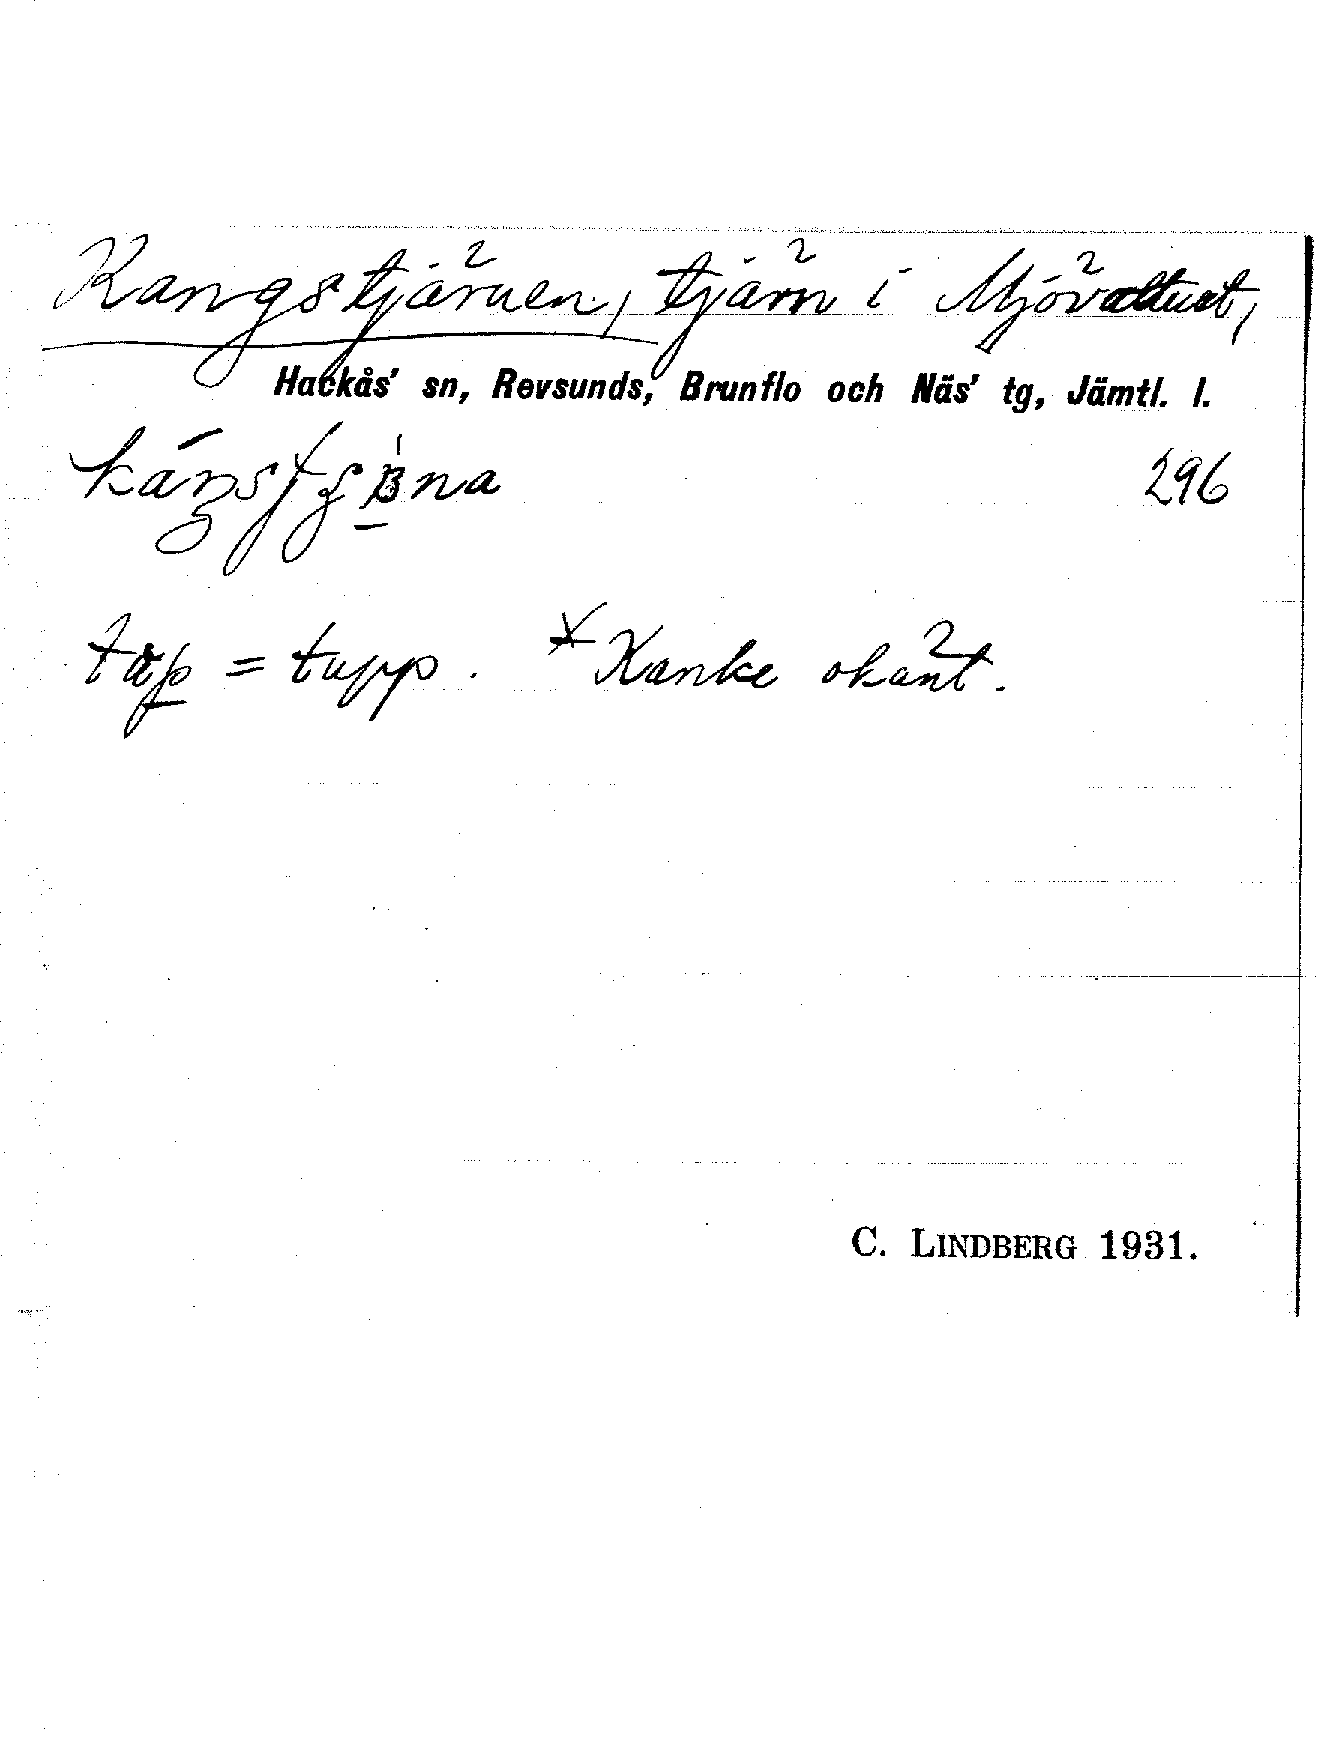 Kangstjärnen, tjärn i
Hackås' sn, Revsunds, Brunflo och Näs' tg, Jämtl. l.
296
tap = tupp. *Kanke okänt.
C. LINDBERG 1931.